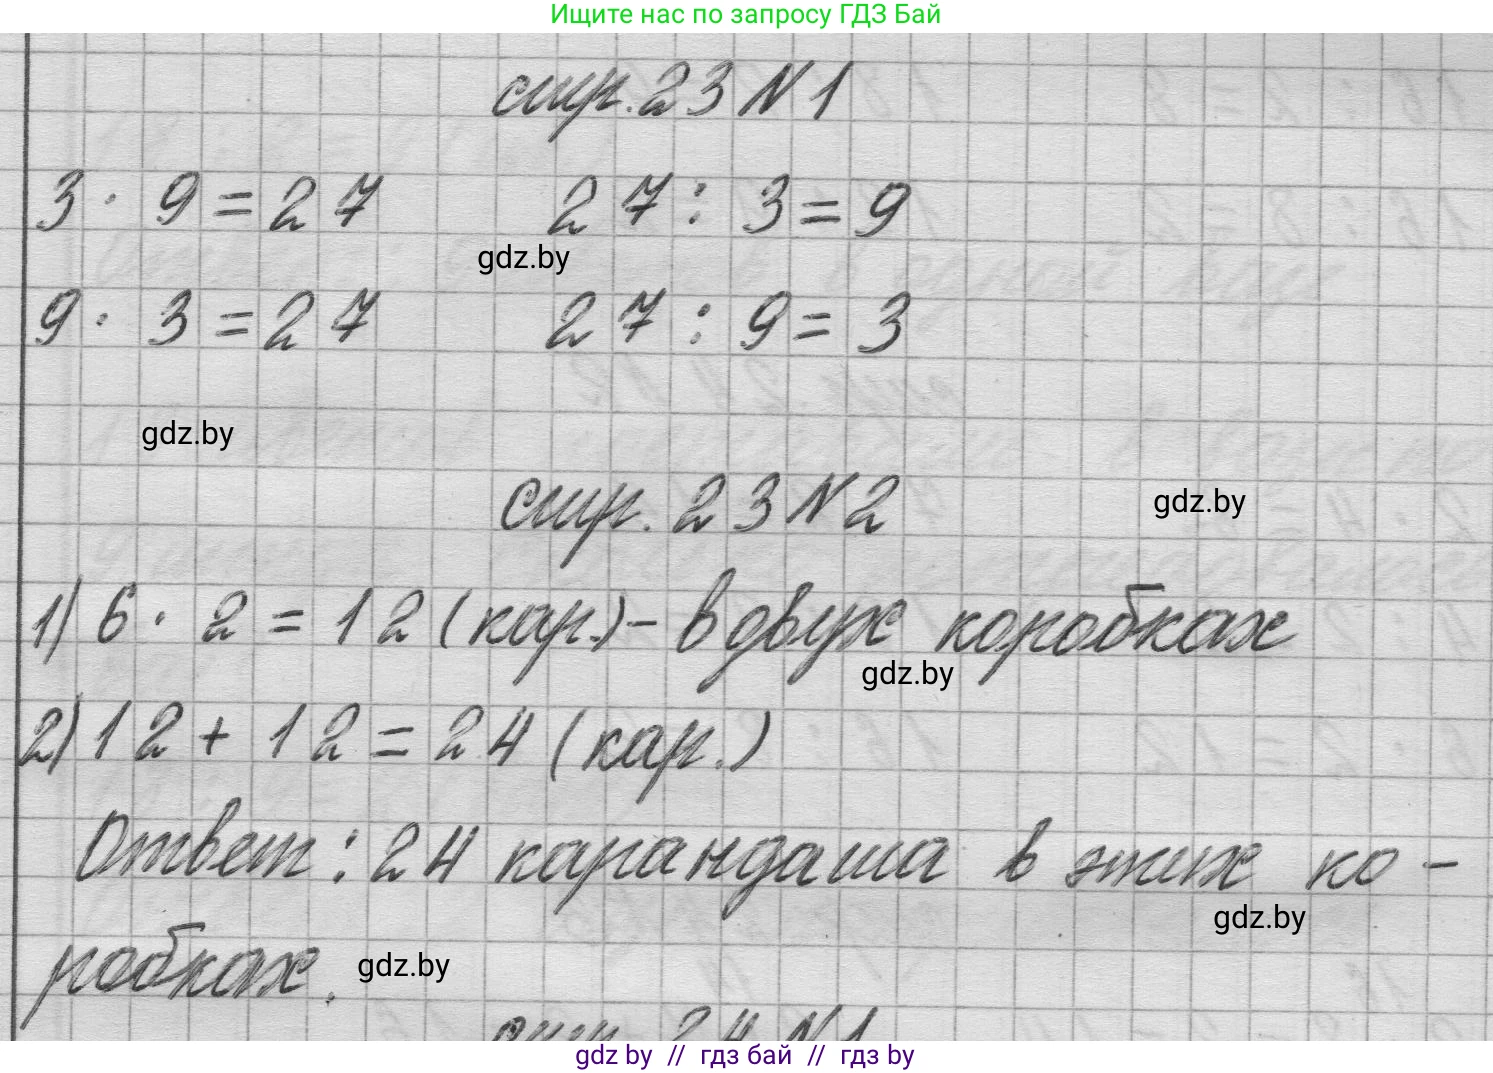 Ищите нас по запросу ГДЗ Бай
стр. 23 N 1
3 · 9 = 27 27 : 3 = 9
gdz.by
9 · 3 = 27 27 : 9 = 3
gdz.by
стр. 23 N 2
gdz.by
1) 6 · 2 = 12 (кар.) - в двух коробках
gdz.by
2) 12 + 12 = 24 (кар.)
Ответ: 24 карандаша в этих ко-
gdz.by
робках.
gdz.by
стр. 24 N 1
gdz by // гдз бай // гдз by